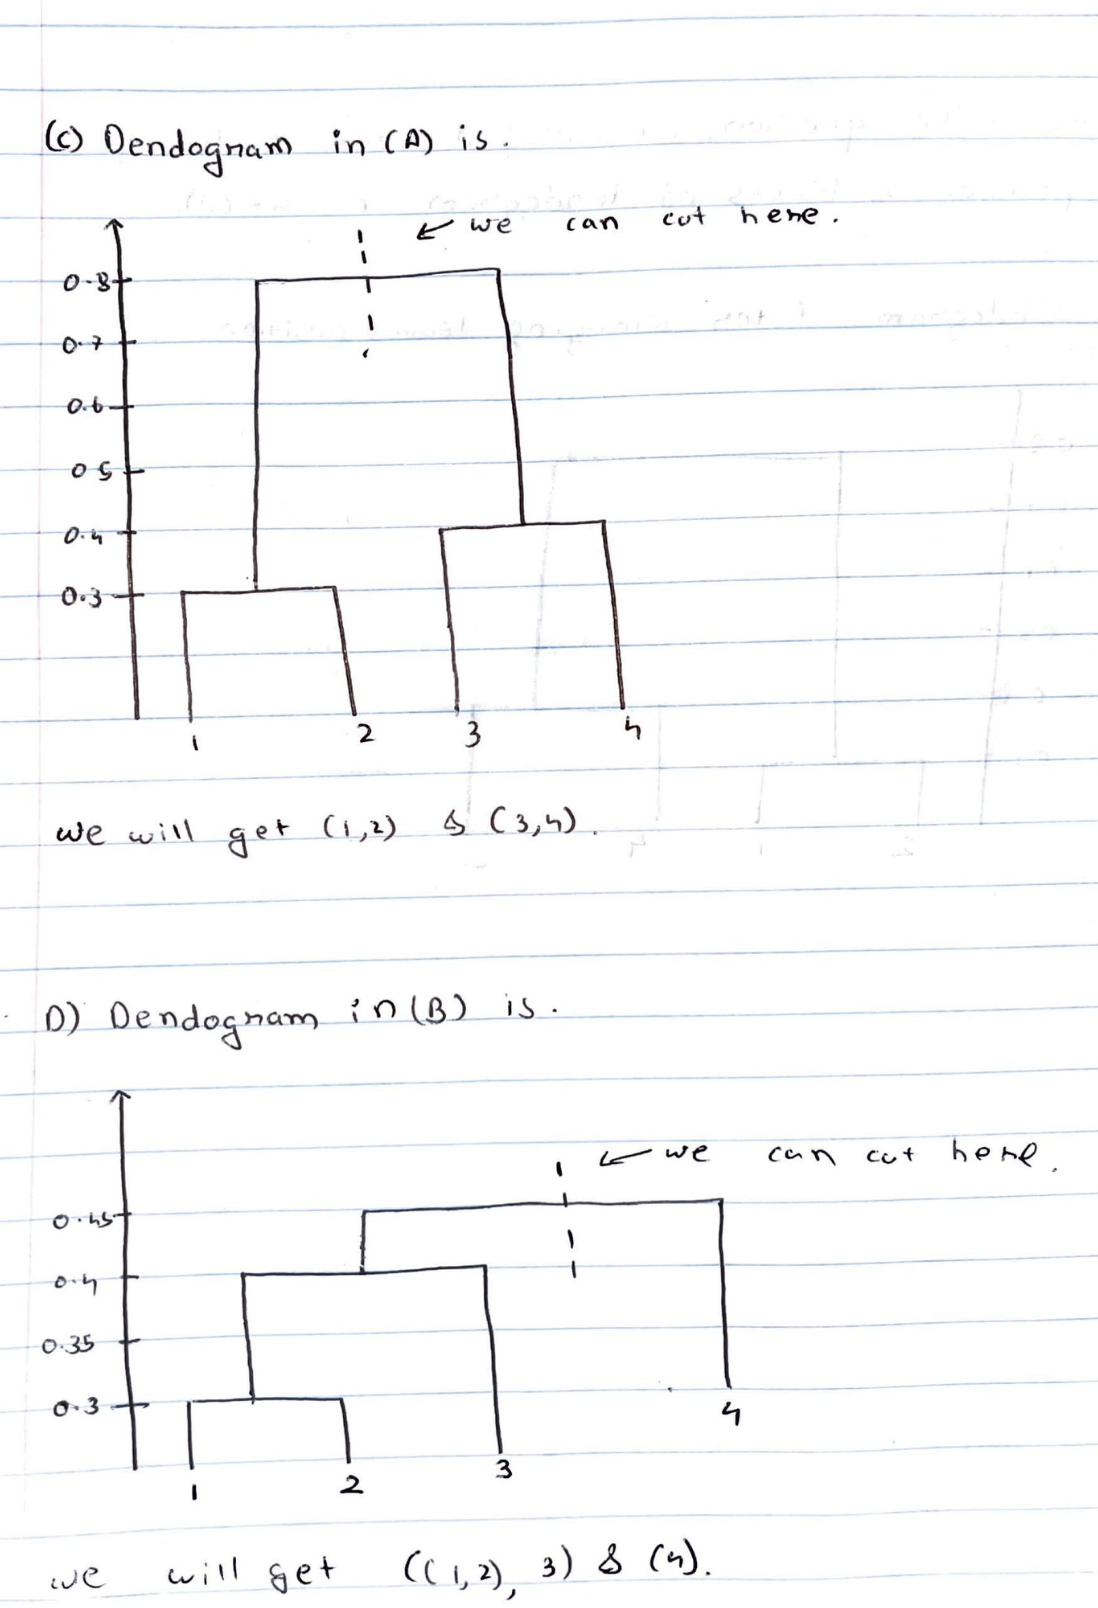 (C) Dendogram in (A) is.
← we can cut here.
0.8
0.7
0.6
0.5
0.4
0.3
1 2 3 4
we will get (1,2) & (3,4).
D) Dendogram in (B) is.
← we can cut here.
0.45
0.4
0.35
0.3
4
1 2 3
we will get ((1,2), 3) & (4).